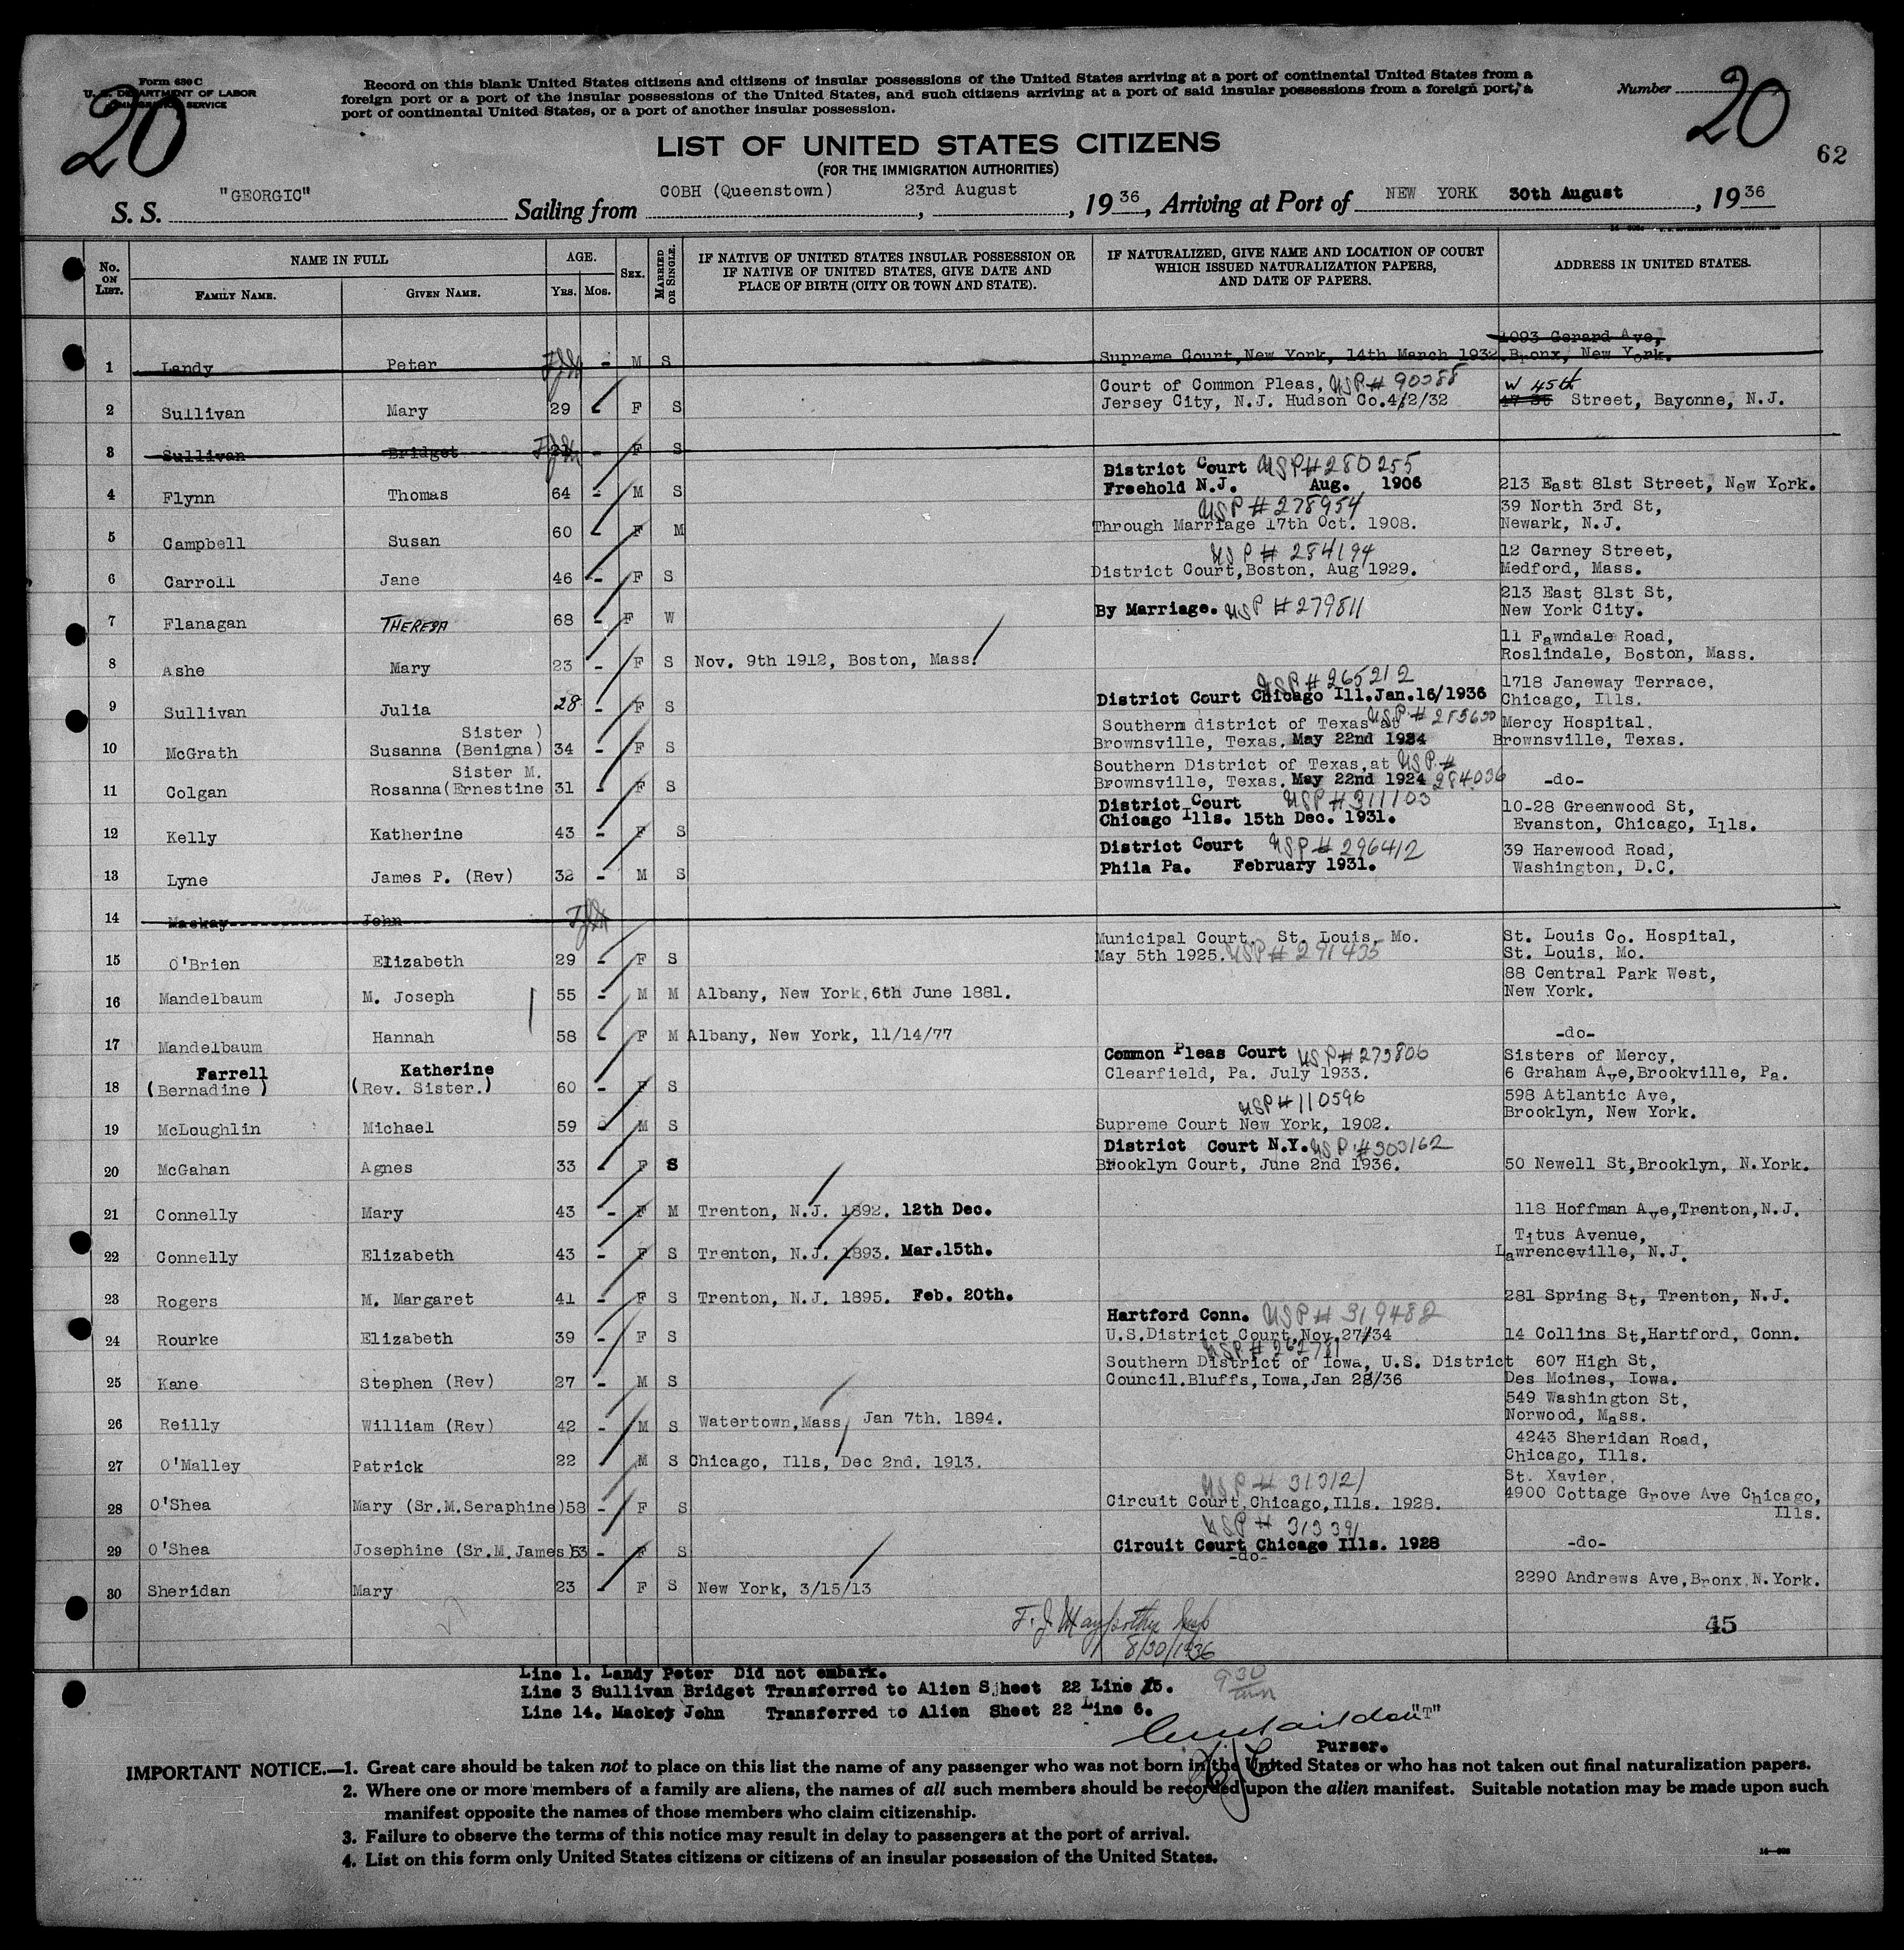 Form 630 C
U. S. DEPARTMENT OF LABOR
IMMIGRATION SERVICE
20
Record on this blank United States citizens and citizens of insular possessions of the United States arriving at a port of continental United States from a
foreign port or a port of the insular possessions of the United States, and such citizens arriving at a port of said insular possessions from a foreign port, a
port of continental United States, or a port of another insular possession.
Number
20
62
LIST OF UNITED STATES CITIZENS
(FOR THE IMMIGRATION AUTHORITIES)
S. S. "GEORGIC" Sailing from COBH (Queenstown), 23rd August, 1936, Arriving at Port of NEW YORK 30th August, 1936
No. ON LIST. NAME IN FULL AGE. SEX. MARRIED OR SINGLE. IF NATIVE OF UNITED STATES INSULAR POSSESSION OR IF NATIVE OF UNITED STATES, GIVE DATE AND PLACE OF BIRTH (CITY OR TOWN AND STATE). IF NATURALIZED, GIVE NAME AND LOCATION OF COURT WHICH ISSUED NATURALIZATION PAPERS, AND DATE OF PAPERS. ADDRESS IN UNITED STATES.
FAMILY NAME. GIVEN NAME. YRS. MOS.
1093 Gerard Ave,
1 Landy Peter - M S Supreme Court, New York, 14th March 1932. Bronx, New York.
Court of Common Pleas, USP# 90388 W 45th
2 Sullivan Mary 29 - F S Jersey City, N.J. Hudson Co. 4/2/32 Street, Bayonne, N.J.
3 Sullivan Bridget 21 - F S
District Court USP# 280255
4 Flynn Thomas 64 - M S Freehold N.J. Aug. 1906 213 East 81st Street, New York.
USP # 278954 39 North 3rd St,
5 Campbell Susan 60 - F M Through Marriage 17th Oct. 1908. Newark, N.J.
USP # 284194 12 Carney Street,
6 Carroll Jane 46 - F S District Court, Boston, Aug 1929. Medford, Mass.
213 East 81st St,
7 Flanagan THERESA 68 - F W By Marriage. USP # 279811 New York City.
11 Fawndale Road,
8 Ashe Mary 23 - F S Nov. 9th 1912, Boston, Mass. Roslindale, Boston, Mass.
USP # 265212 1718 Janeway Terrace,
9 Sullivan Julia 28 - F S District Court Chicago Ill. Jan. 16/1936 Chicago, Ills.
Sister ) Southern district of Texas at USP # 285630 Mercy Hospital.
10 McGrath Susanna (Benigna) 34 - F S Brownsville, Texas. May 22nd 1924 Brownsville, Texas.
Sister M. Southern District of Texas, at USP #
11 Colgan Rosanna (Ernestine 31 - F S Brownsville, Texas. May 22nd 1924 284036 -do-
District Court USP # 311103 10-28 Greenwood St,
12 Kelly Katherine 43 - F S Chicago Ills. 15th Dec. 1931. Evanston, Chicago, Ills.
District Court USP # 296412 39 Harewood Road,
13 Lyne James P. (Rev) 32 - M S Phila Pa. February 1931. Washington, D.C.
14 Mackay John
Municipal Court. St. Louis, Mo. St. Louis Co. Hospital,
15 O'Brien Elizabeth 29 - F S May 5th 1925. USP # 291435 St. Louis, Mo.
88 Central Park West,
16 Mandelbaum M. Joseph 55 - M M Albany, New York, 6th June 1881. New York.
17 Mandelbaum Hannah 58 - F M Albany, New York, 11/14/77 -do-
Farrell Katherine Common Pleas Court USP # 273806 Sisters of Mercy,
18 (Bernadine ) (Rev. Sister.) 60 - F S Clearfield, Pa. July 1933. 6 Graham Ave, Brookville, Pa.
USP # 110596 598 Atlantic Ave,
19 McLoughlin Michael 59 - M S Supreme Court New York, 1902. Brooklyn, New York.
District Court N.Y. USP # 303162
20 McGahan Agnes 33 - F S Brooklyn Court, June 2nd 1936. 50 Newell St, Brooklyn, N.York.
21 Connelly Mary 43 - F M Trenton, N.J. 1892. 12th Dec. 118 Hoffman Ave, Trenton, N.J.
Titus Avenue,
22 Connelly Elizabeth 43 - F S Trenton, N.J. 1893. Mar. 15th. Lawrenceville, N.J.
23 Rogers M. Margaret 41 - F S Trenton, N.J. 1895. Feb. 20th. 281 Spring St, Trenton, N.J.
Hartford Conn. USP # 319482
24 Rourke Elizabeth 39 - F S U.S. District Court, Nov. 27/34 14 Collins St, Hartford, Conn.
USP # 262781
Southern District of Iowa, U.S. District 607 High St,
25 Kane Stephen (Rev) 27 - M S Council.Bluffs, Iowa, Jan 28/36 Des Moines, Iowa.
549 Washington St,
26 Reilly William (Rev) 42 - M S Watertown, Mass, Jan 7th. 1894. Norwood, Mass.
4243 Sheridan Road,
27 O'Malley Patrick 22 M S Chicago, Ills, Dec 2nd. 1913. Chicago, Ills.
USP # 313121 St. Xavier,
28 O'Shea Mary (Sr.M.Seraphine) 58 - F S Circuit Court, Chicago, Ills. 1928. 4900 Cottage Grove Ave Chicago,
Ills.
USP # 313391
29 O'Shea Josephine (Sr.M.James) 53 - F S Circuit Court Chicago Ills. 1928 -do-
-do-
30 Sheridan Mary 23 - F S New York, 3/15/13 2290 Andrews Ave, Bronx, N.York.
8/30/1936
45
Line 1. Landy Peter Did not embark.
Line 3 Sullivan Bridget Transferred to Alien Sheet 22 Line 15.
Line 14. Mackey John Transferred to Alien Sheet 22 Line 6.
"T"
Purser.
IMPORTANT NOTICE.—1. Great care should be taken not to place on this list the name of any passenger who was not born in the United States or who has not taken out final naturalization papers.
2. Where one or more members of a family are aliens, the names of all such members should be recorded upon the alien manifest. Suitable notation may be made upon such
manifest opposite the names of those members who claim citizenship.
3. Failure to observe the terms of this notice may result in delay to passengers at the port of arrival.
4. List on this form only United States citizens or citizens of an insular possession of the United States.